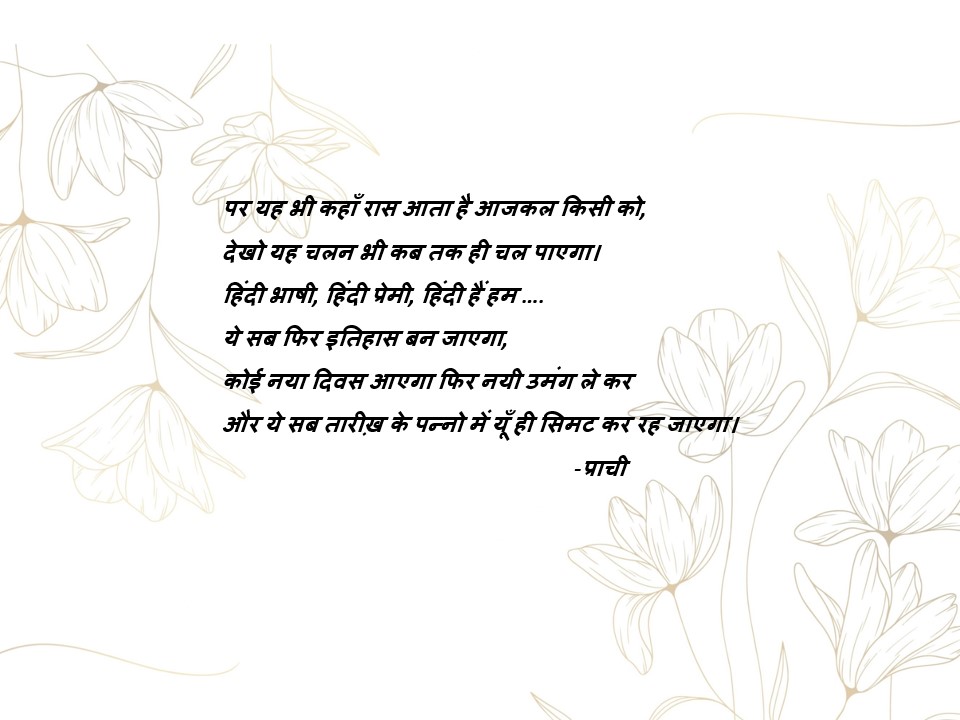 पर यह भी कहाँ रास आता है आजकल किसी को,
देखो यह चलन भी कब तक ही चल पाएगा।
हिंदी भाषी, हिंदी प्रेमी, हिंदी हैं हम ....
ये सब फिर इतिहास बन जाएगा,
कोई नया दिवस आएगा फिर नयी उमंग ले कर
और ये सब तारीख़ के पन्नो में यूँ ही सिमट कर रह जाएगा।
-प्राची